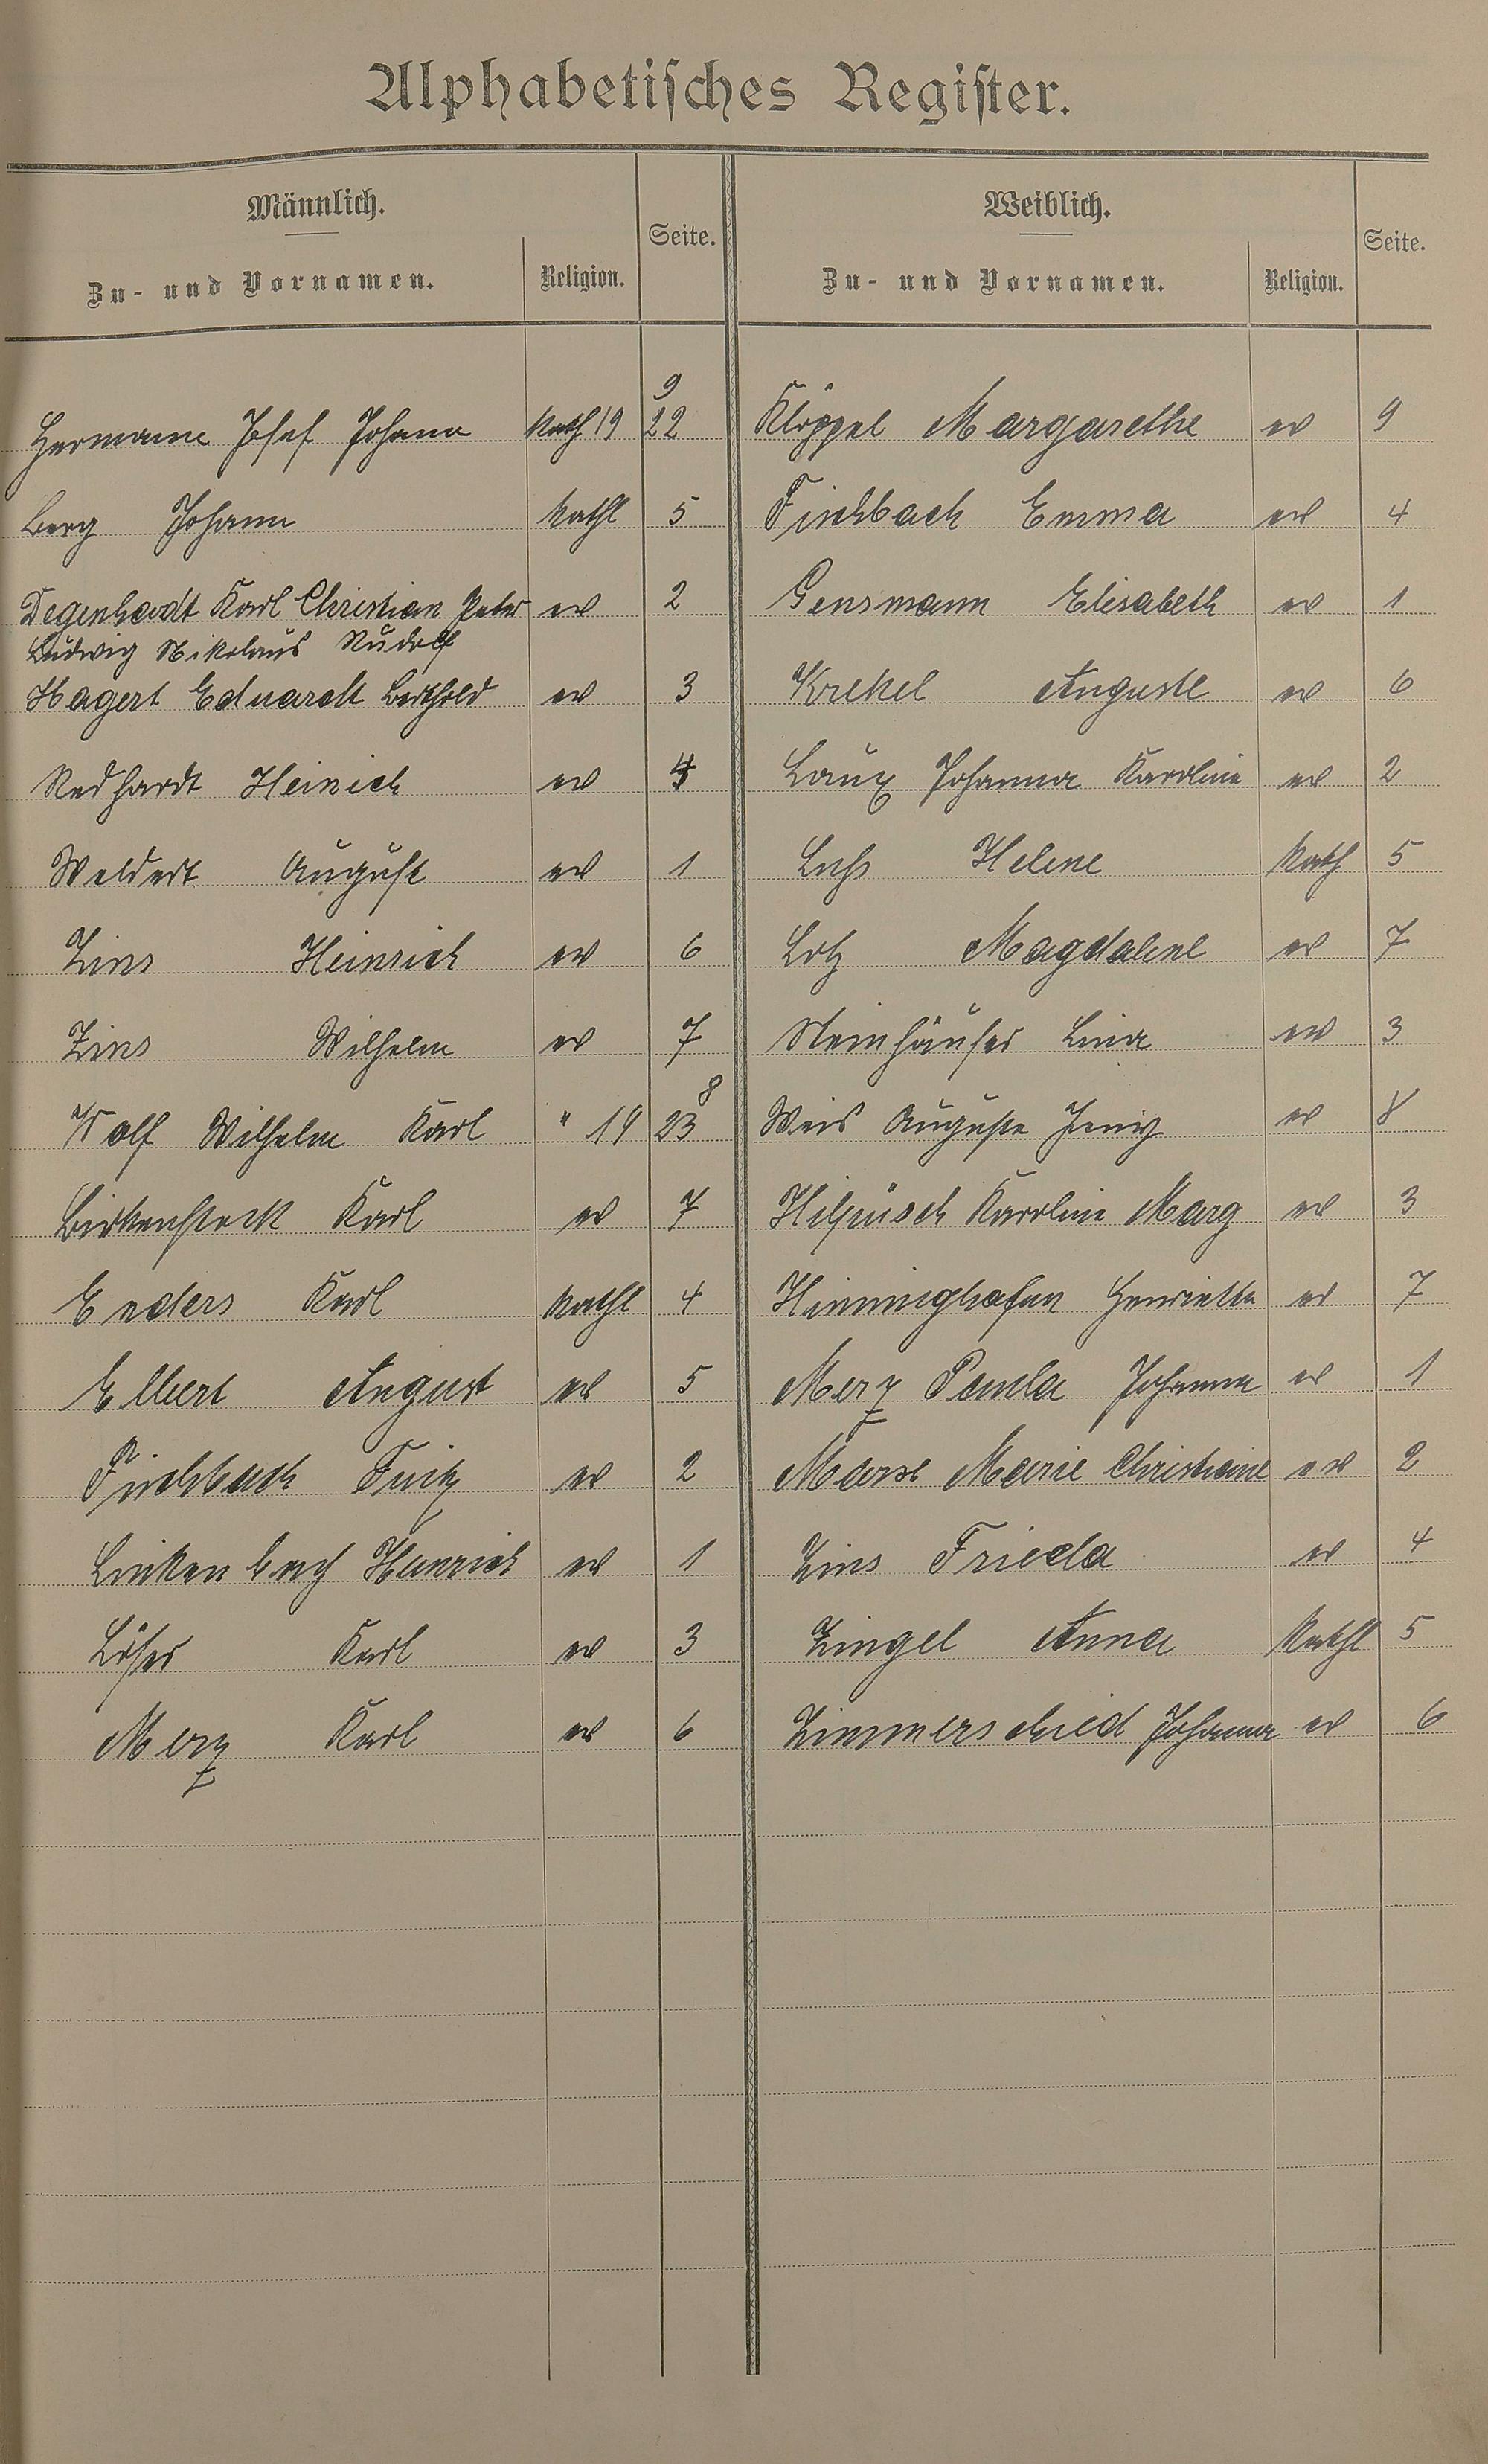 Alphabetisches Register.
Männlich.
Zu- und Vornamen. Religion. Seite.
Weiblich.
Zu- und Vornamen. Religion. Seite.
9
Hermann Josef Johann Kath 19 22
Berg Johann Kathl 5
Degenhardt Karl Christian Peter ev 2
Ludwig Nikolaus Rudolf
Hagert Eduardt Berthold ev 3
Redhardt Heinich ev 4
Weldert August ev 1
Zins Heinrich ev 6
Zins Wilhelm ev 7
8
Wolf Wilhelm Karl " 19 23
Birkenstock Karl ev 7
Enders Karl Kathl 4
Elbert August ev 5
Fischbach Fritz ev 2
Linkenbach Heinrich ev 1
Löser Karl ev 3
Merz Karl ev 6
Klöppel Margarethe ev 9
Fischbach Emma ev 4
Gensmann Elisabeth ev 1
Krekel Auguste ev 6
Laux Johanna Karoline ev 2
Helene Kath 5
Lotz Magdalene ev 7
Steinhäuser Lina ev 3
Weis Auguste Jenny ev 8
Karoline Marg ev 3
Himmighofen Henriette ev 7
Merz Paula Johanna ev 1
Marie Christiane ev 2
Zins Frieda ev 4
Zingel Anna Kathl 5
Zimmerschied Johanna ev 6